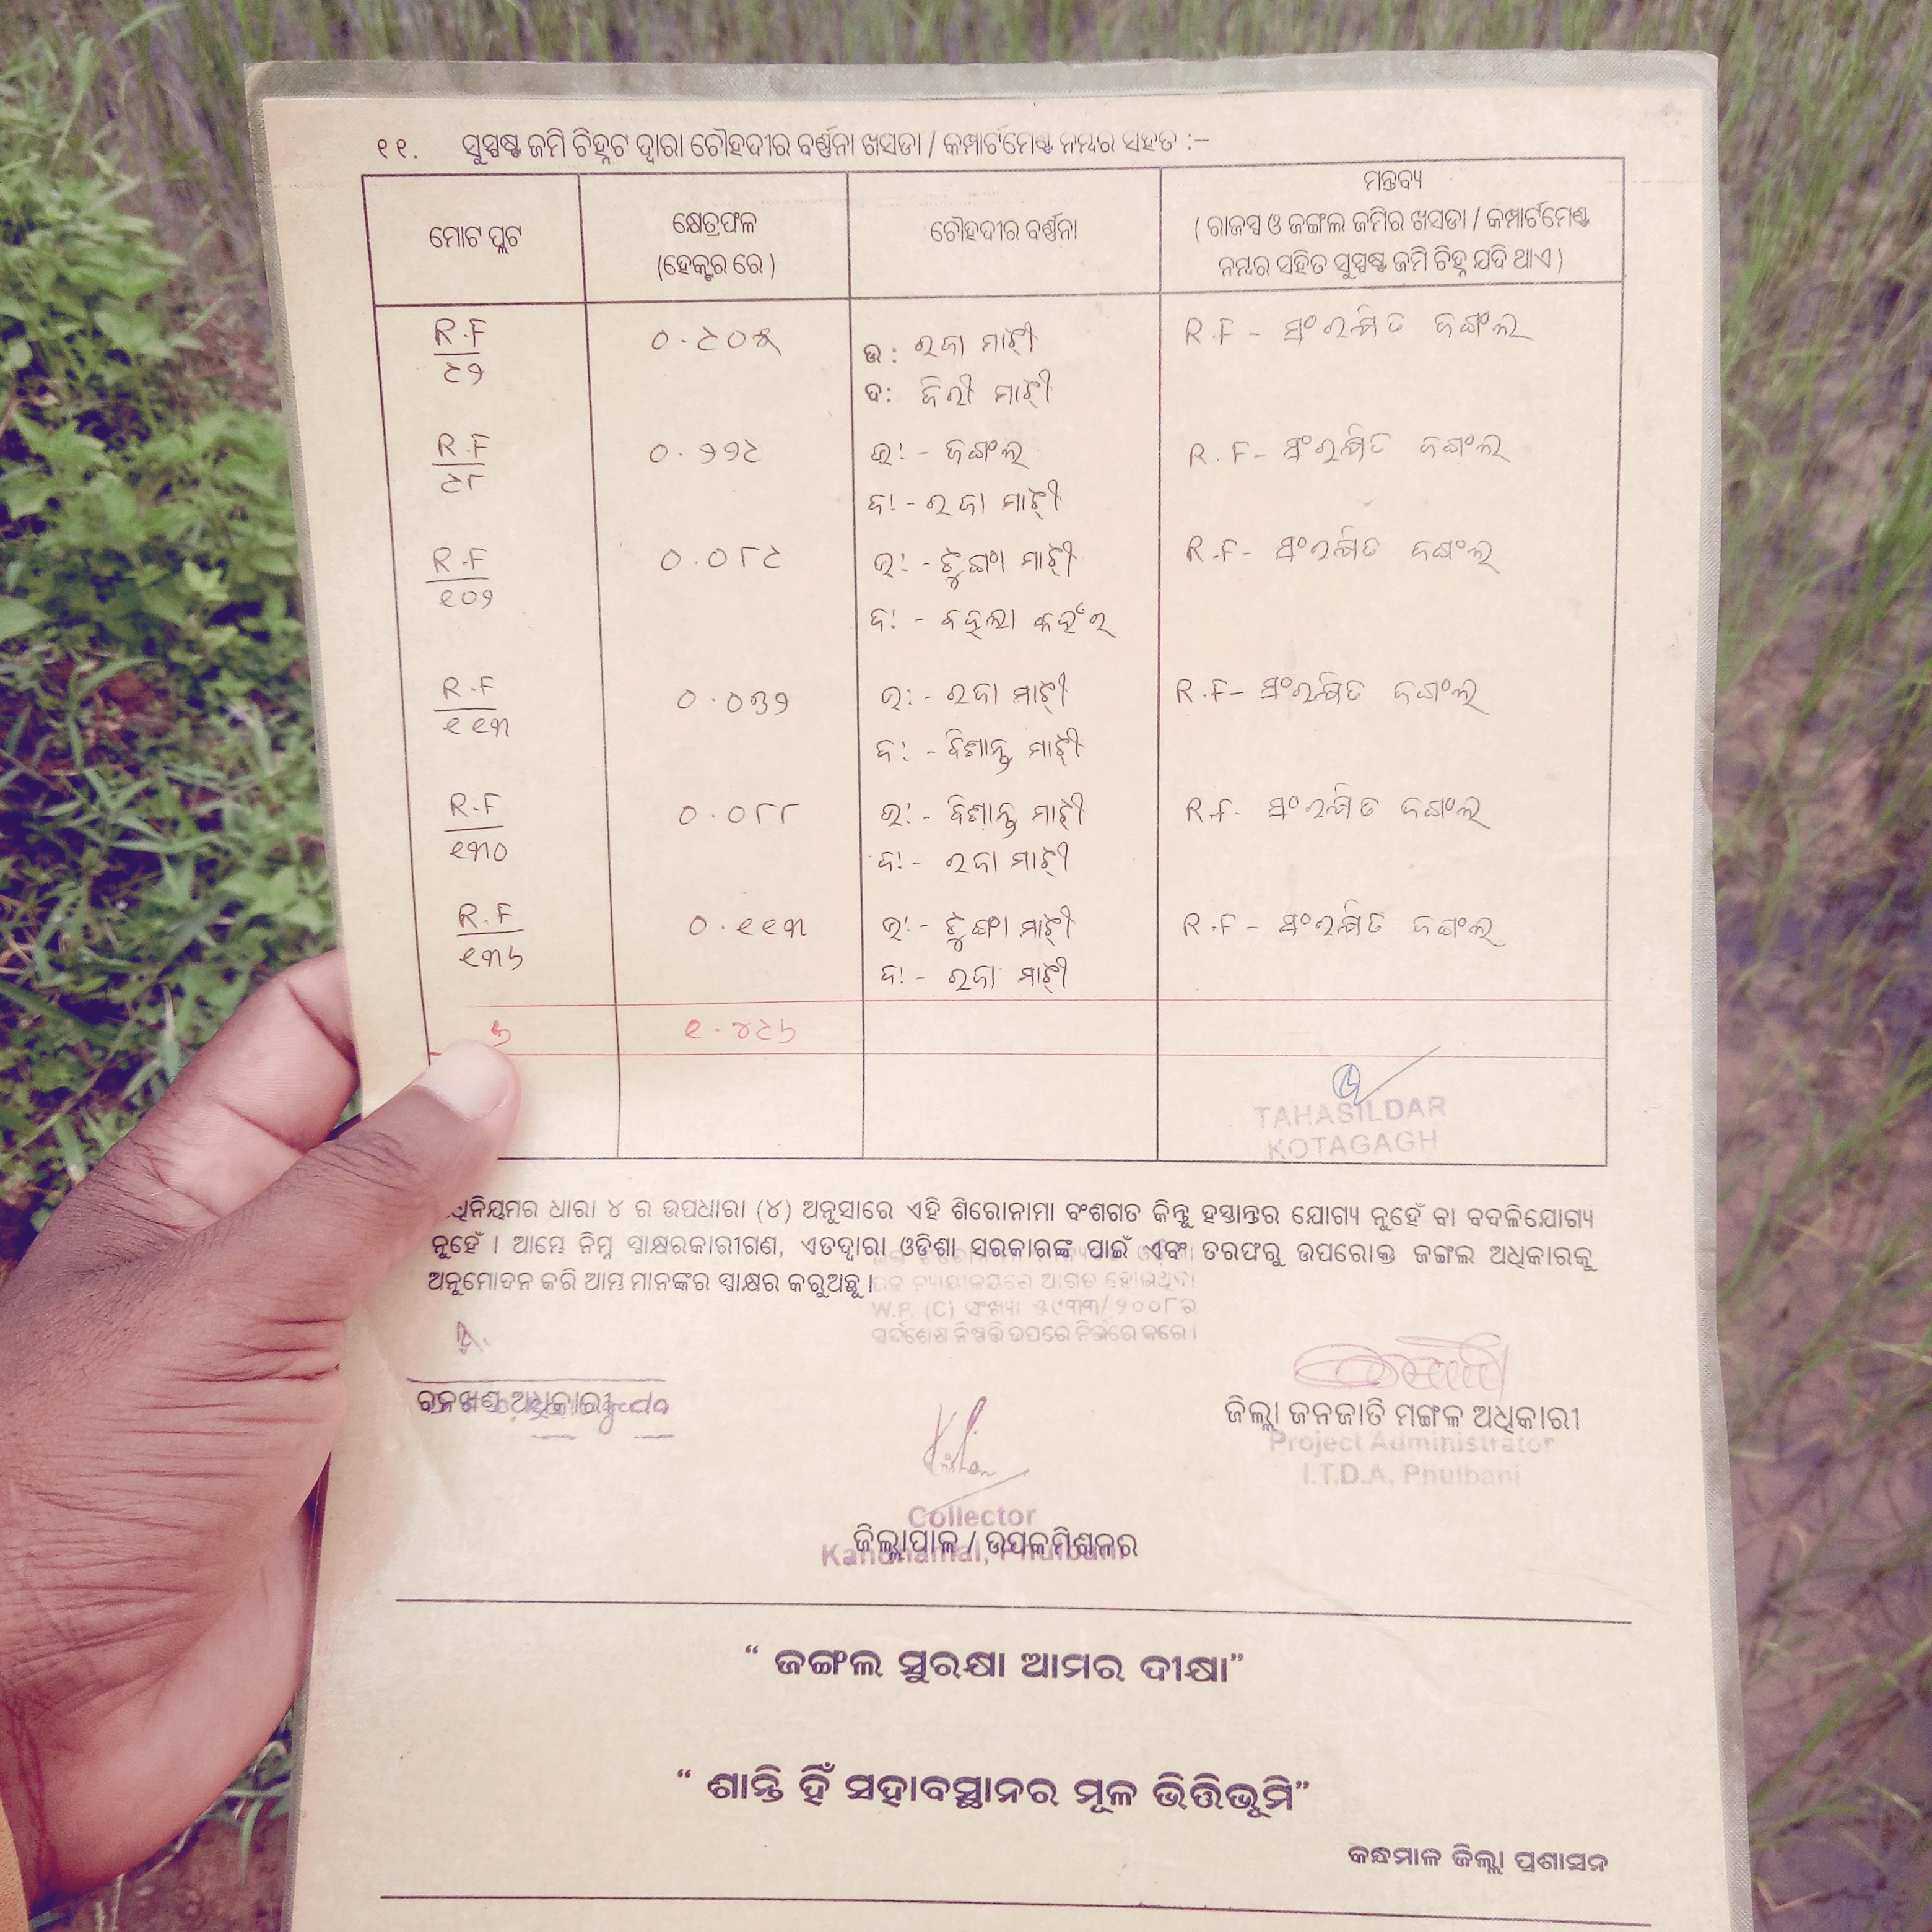 ୧୧. ସୁସ୍ପଷ୍ଟ ଜମି ଚିହ୍ନଟ ଦ୍ଵାରା ଚୌହଦୀର ବର୍ଣ୍ଣନା ଖସଡା / କମ୍ପାର୍ଟମେଣ୍ଟ ନମ୍ବର ସହତ :–
ମୋଟ ପ୍ଲଟ
କ୍ଷେତ୍ରଫଳ
(ହେକ୍ଟର ରେ )
ଚୌହଦୀର ବର୍ଣ୍ଣନା
ମନ୍ତବ୍ୟ
( ରାଜସ୍ଵ ଓ ଜଙ୍ଗଲ ଜମିର ଖସଡା / କମ୍ପାର୍ଟମେଣ୍ଟ
ନମ୍ବର ସହିତ ସୁସ୍ପଷ୍ଟ ଜମି ଚିହ୍ନ ଯଦି ଥାଏ )
R.F
୯୨
ଉ : ରଜା ମାଝୀ
ଦ: ମାଝୀ
R.F - ସଂରକ୍ଷିତ ଜଙ୍ଗଲ
R.F
୯୮
୦.୨୨୯
ଉ: - ଜଙ୍ଗଲ
ଦ: - ରଜା ମାଝୀ
R.F - ସଂରକ୍ଷିତ ଜଙ୍ଗଲ
R.F
୧୦୨
୦.୦୮୯
ଉ: - ମାଝୀ
ଦ: - କହଁର
R.F - ସଂରକ୍ଷିତ ଜଙ୍ଗଲ
R.F
୧୧୩
୦.୦୩୨
ଉ: - ରଜା ମାଝୀ
ଦ: - ମାଝୀ
R.F - ସଂରକ୍ଷିତ ଜଙ୍ଗଲ
R.F
୧୩୦
୦.୦୮୮
ଉ: - ମାଝୀ
ଦ: - ରଜା ମାଝୀ
R.F - ସଂରକ୍ଷିତ ଜଙ୍ଗଲ
R.F
୧୩୬
୦.୧୧୩
ଉ: - ମାଝୀ
ଦ: - ରଜା ମାଝୀ
R.F - ସଂରକ୍ଷିତ ଜଙ୍ଗଲ
୬ ୧.୪୯୬
TAHASILDAR
KOTAGAGH
ଧାରା ୪ ର ଉପଧାରା (୪) ଅନୁସାରେ ଏହି ଶିରୋନାମା ବଂଶଗତ କିନ୍ତୁ ହସ୍ତାନ୍ତର ଯୋଗ୍ୟ ନୁହେଁ ବା ବଦଳିଯୋଗ୍ୟ
ନୁହେଁ । ଆମ୍ଭେ ନିମ୍ନ ସ୍ଵାକ୍ଷରକାରୀଗଣ, ଏତଦ୍ଵାରା ଓଡିଶା ସରକାରଙ୍କ ପାଇଁ ଏବଂ ତରଫରୁ ଉପରୋକ୍ତ ଜଙ୍ଗଲ ଅଧିକାରକୁ
ଅନୁମୋଦନ କରି ଆମ୍ଭ ମାନଙ୍କର ସ୍ଵାକ୍ଷର କରୁଅଛୁ ।
ନ୍ୟାୟାଳୟରେ ଆଗତ ହୋଇଥିବା
W.P. (C) ସଂଖ୍ୟା ୫୯୩୩/୨୦୦୮ର
ସର୍ବଶେଷ ନିଷ୍ପତ୍ତି ଉପରେ ନିର୍ଭରେ କରେ ।
ବନଖଣ୍ଡ ଅଧିକାରୀ
ଜିଲ୍ଲା ଜନଜାତି ମଙ୍ଗଳ ଅଧିକାରୀ
Project Administrator
I.T.D.A, Phulbani
Collector
ଜିଲ୍ଲାପାଳ / ଉପକମିଶନର
Kandhamal, Phulbani
“ ଜଙ୍ଗଲ ସୁରକ୍ଷା ଆମର ଦୀକ୍ଷା”
“ ଶାନ୍ତି ହିଁ ସହାବସ୍ଥାନର ମୂଳ ଭିତ୍ତିଭୂମି”
କନ୍ଧମାଳ ଜିଲ୍ଲା ପ୍ରଶାସନ